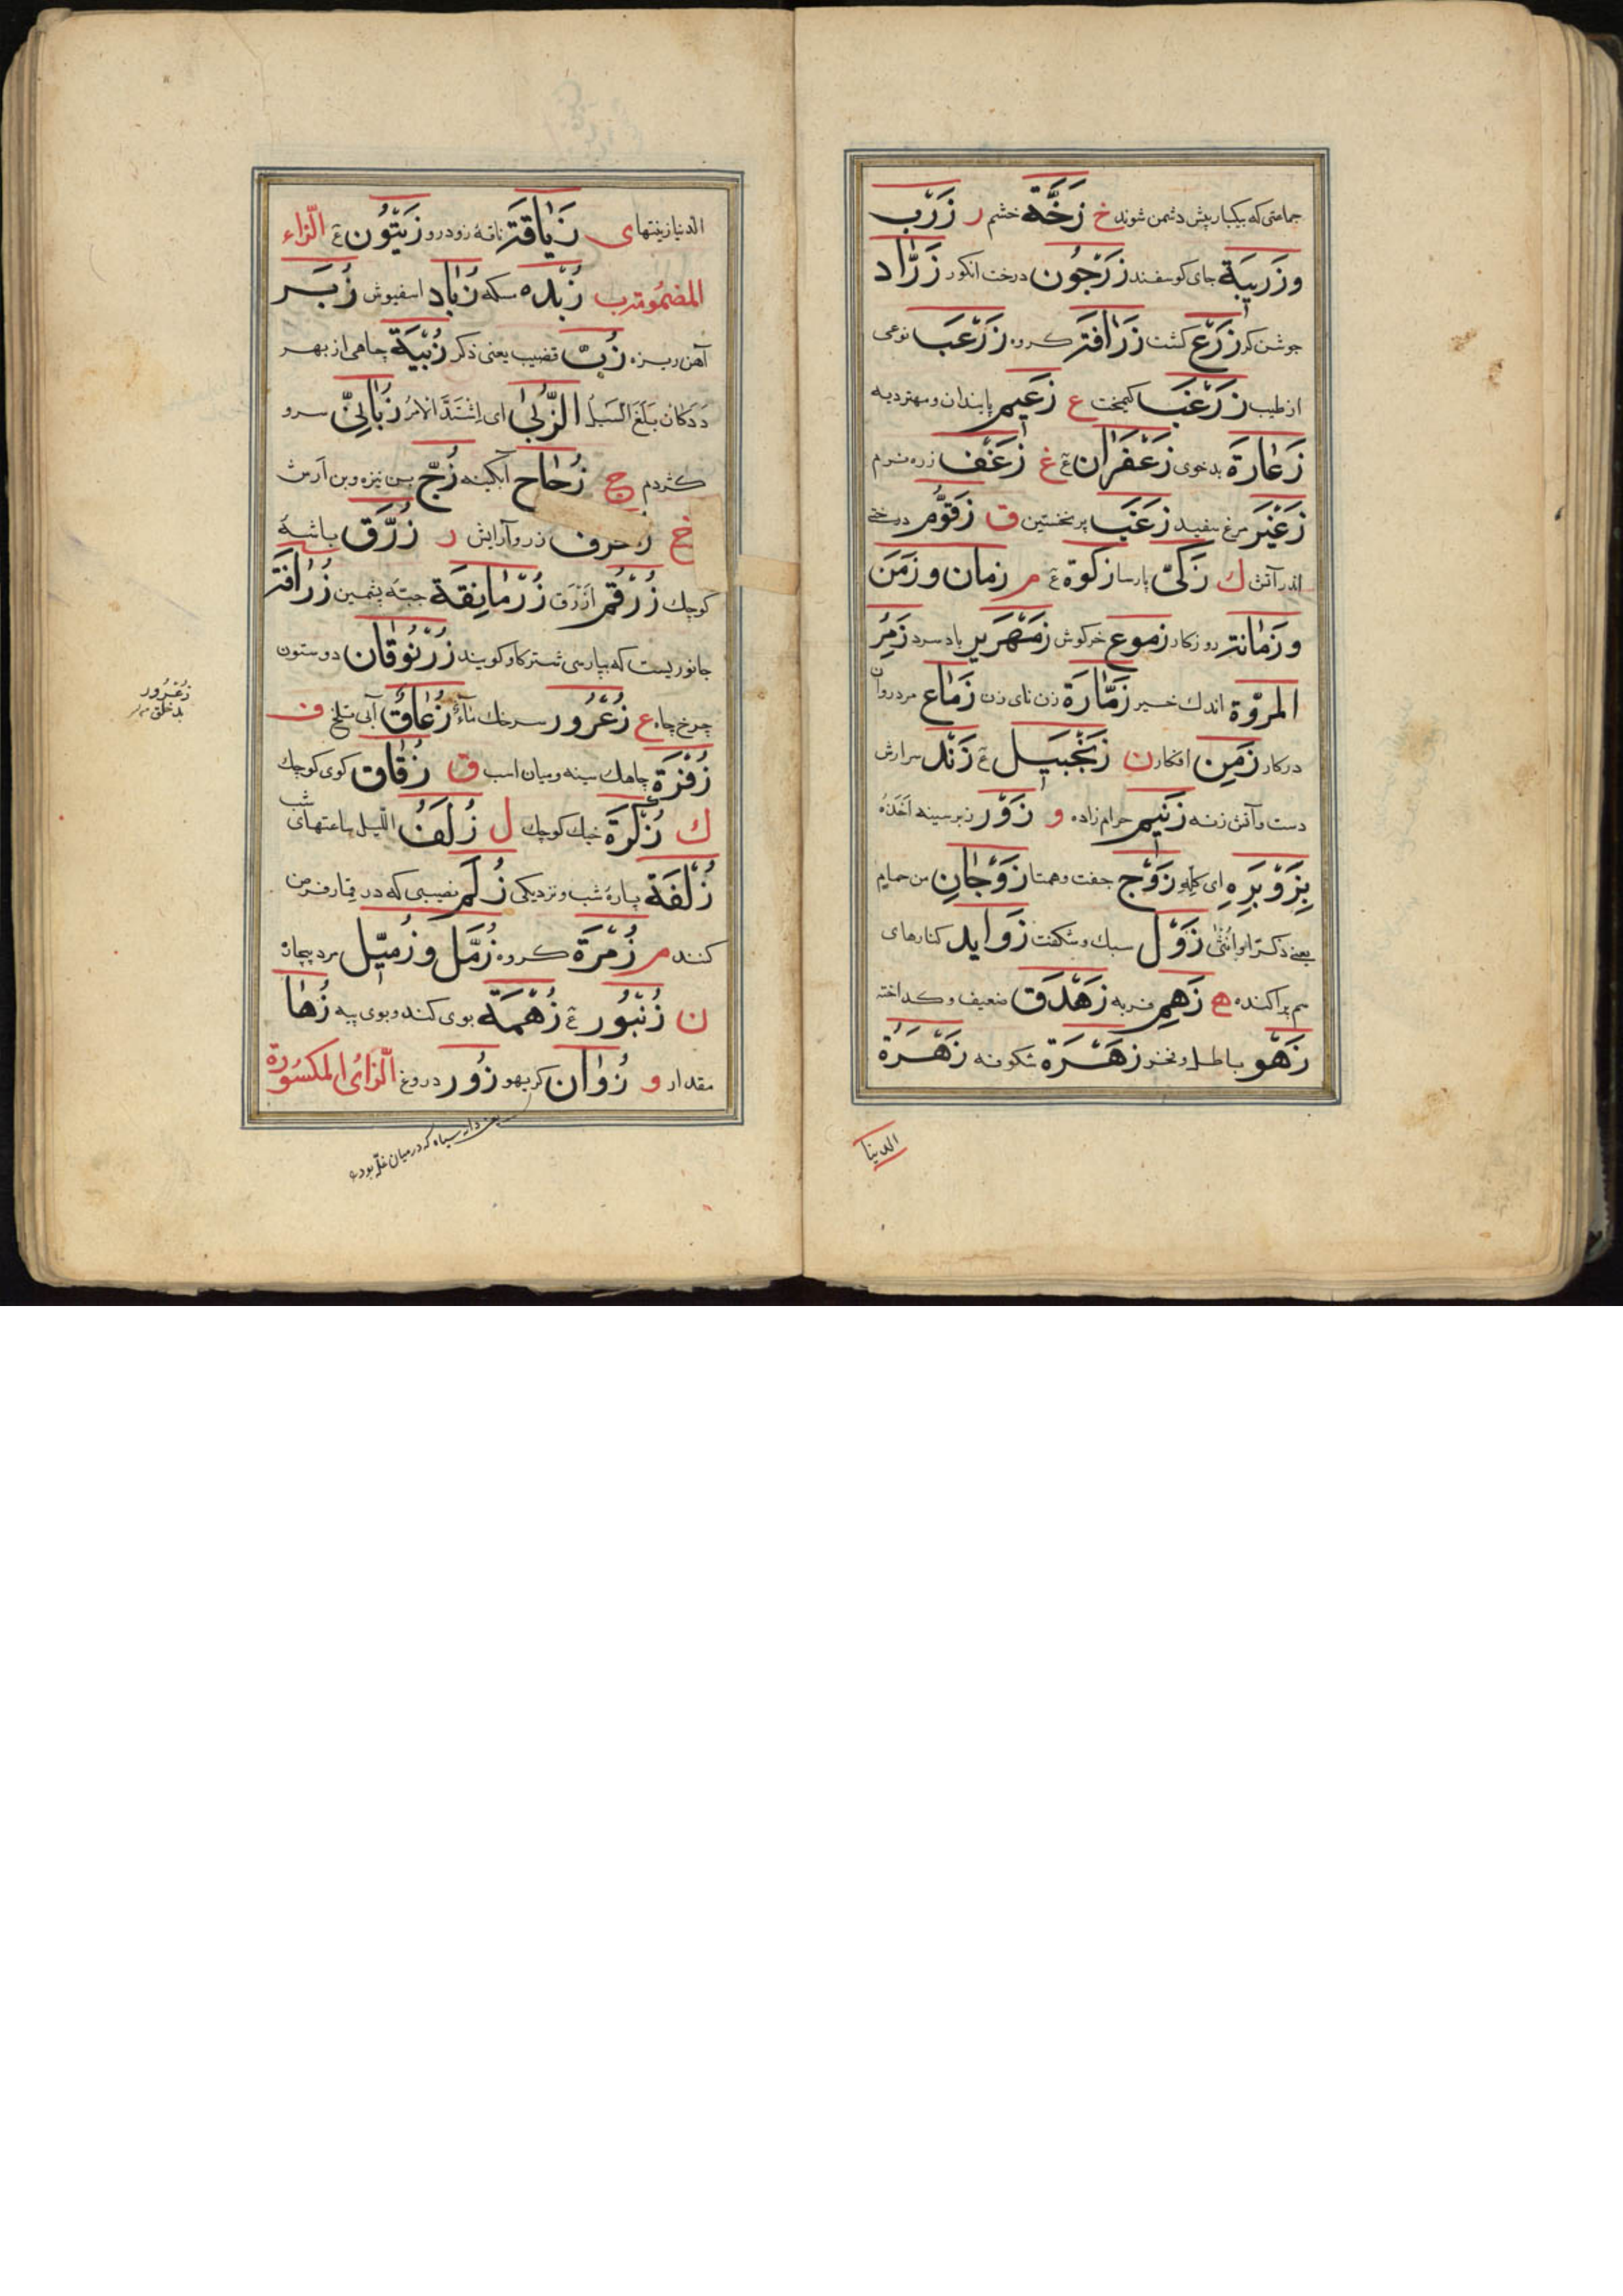 جماعتی که بیکبار پیش دشمن شوند خ زَخَّة خشم ر زَرْب
وزَرِیبَة جای کوسفند زَرَجُون درخت انکور زَرَّاد
جوشن کر زَرْع کشت زَرَافَة کروه زَرْعَب نوعی
از طیب زَرْغَب کیمخت ع زَعِیم پایندان و مهتر دیه
زَعَارَة بدخوی زَعْفَرَان غ زَغْف زره نرم
مرغ سفید زَغَب پر نخستین ق زَقُّوم درختی
اندر آتش ك زَکِیّ پارسا زکوة م زمان وزَمَن
وزَمَانَة روزکار زموع خرکوش زَمْهَرِیر باد سرد زَمِرُ
المُرُوَّة اندك خیر زَمَّارَة زن نای زن زَمَاع مرد روان
در کار زَمِن افکار ن زَنْجَبِیل زَنْد سر ارش
دست و آتش زنه زَنِیم حرام زاده و زَوْر زبر سینه اَخَذَهُ
بِزَوْبَرِه ای کله زَوْج جفت و همتا زَوْجَانِ من حمام
یعنی ذکرا او انثی زَوْل سبك و شکفت زَوَاید کنارهای
سم پراکنده ه زَهِم فربه زَهْدَق ضعیف و کداخته
زَهْو باطل و فخر زَهَرَة شکوفه زَهْرَةُ
الدنیا
الدنیا زینتهای زَیَّافَة ناقهٔ زود رو زَیْتُون الزاء
المضمومة ب زُبْدَه مسکه زُبَاد اسفیوش زُبَر
آهن ریزه زُبّ قضیب یعنی ذکر زُبْیَة چاهی از بهر
ددکان بَلَغَ السَّیْلُ الزُّبَی ای اِشْتَدَّ الاَمْرُ زُبَانَیّ سرو
کژدم ج زُجَاج آبکینه زُجّ بن نیزه و بن آرش
خ زخرف زر و آرایش ر زُرَّق باشهٔ
کوچك زُرْقُم ازرق زُرْمَانِقَة جبّهٔ پشمین زُرَافَة
جانوریست که بپارسی شترکاو کویند زُرْنُوقَان دو ستون
چرخ چاه ع زُعْرُور سرخك مَاءٌ زُعَاقٌ آبی تلخ ف
زُفْرَة چاهك سینه و میان اسب ق زُقَاق کوی کوچك
ك زُکْرَة خیك کوچك ل زُلَفُ اللّیل ساعتهای شب
زُلْفَة پارهٔ شب و نزدیکی زُلَم نصیبی که در قمار فرض
کنند م زُمْرَة کروه زُمَّل و زُمَّیْل مرد پیچان
ن زُنْبُور زُهْمَة بوی کنده و بوی پیه زُهَا
مقدار و زُوَان کربهو زُور دروغ الزای المکسورة
زُعْرُور
بدخلق
یعنی دانه سیاه که در میان غله بود